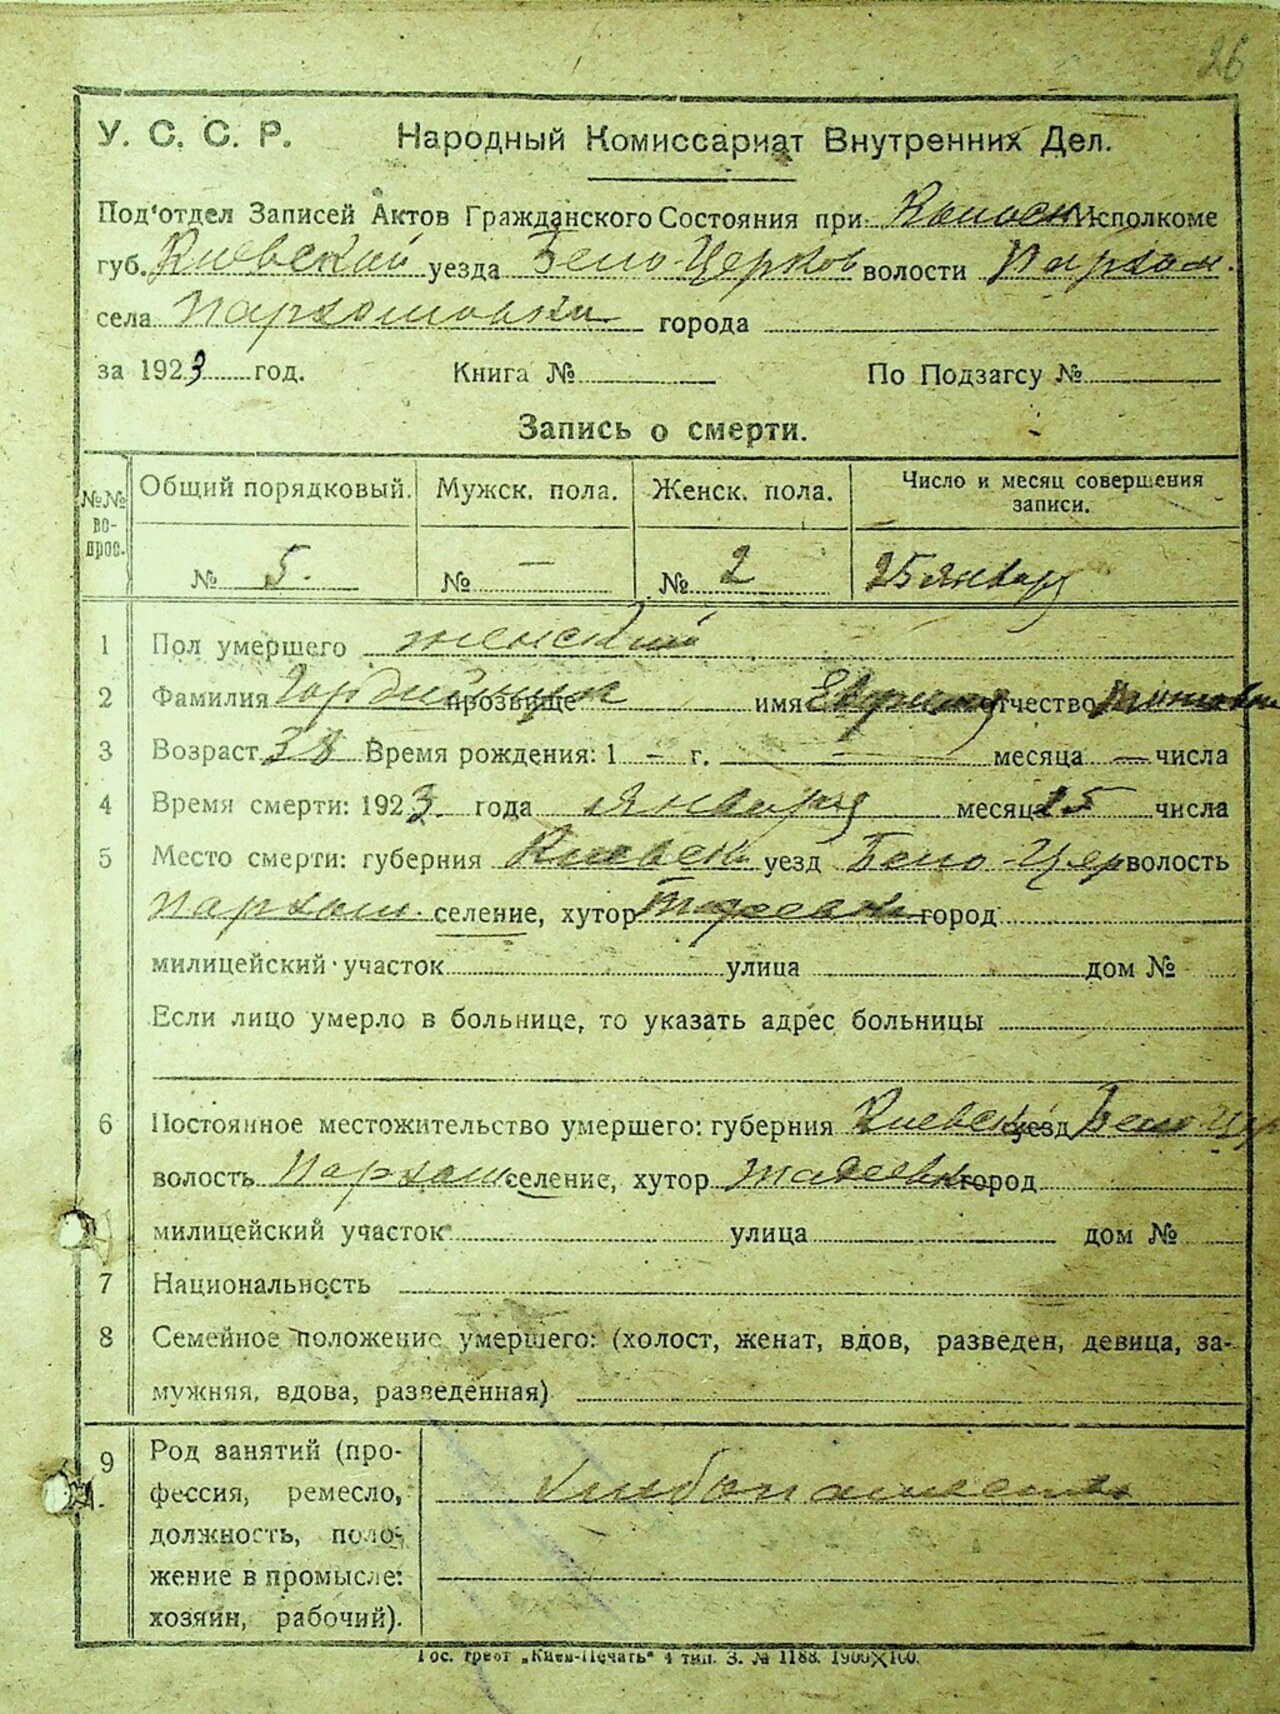 26
У. С. С. Р. Народный Комиссариат Внутренних Дел.
Под'отдел Записей Актов Гражданского Состояния при Исполкоме
губ. Киевский уезда Бело-Церков волости Пархом.
села Пархомовки города
за 1923 год. Книга № По Подзагсу №
Запись о смерти.
№№ вопрос. Общий порядковый. Мужск. пола. Женск. пола. Число и месяц совершения записи.
№ 5. № — № 2 25 января
1 Пол умершего женский
2 Фамилия прозвище имя отчество
3 Возраст 38 Время рождения: 1 — г. — месяца — числа
4 Время смерти: 1923. года января месяца 25 числа
5 Место смерти: губерния Киевск уезд Бело-Цер волость
Пархом. селение, хутор город
милицейский участок улица дом №
Если лицо умерло в больнице, то указать адрес больницы
6 Постоянное местожительство умершего: губерния Киевск уезд Бело-Цер
волость Пархом селение, хутор город
милицейский участок улица дом №
7 Национальность
8 Семейное положение умершего: (холост, женат, вдов, разведен, девица, за-
мужняя, вдова, разведенная)
9 Род занятий (про-
фессия, ремесло, хлебопашество
должность, поло-
жение в промысле:
хозяин, рабочий).
Гос. трест „Киев-Печать" 4 тип. З. № 1188. 1900×100.